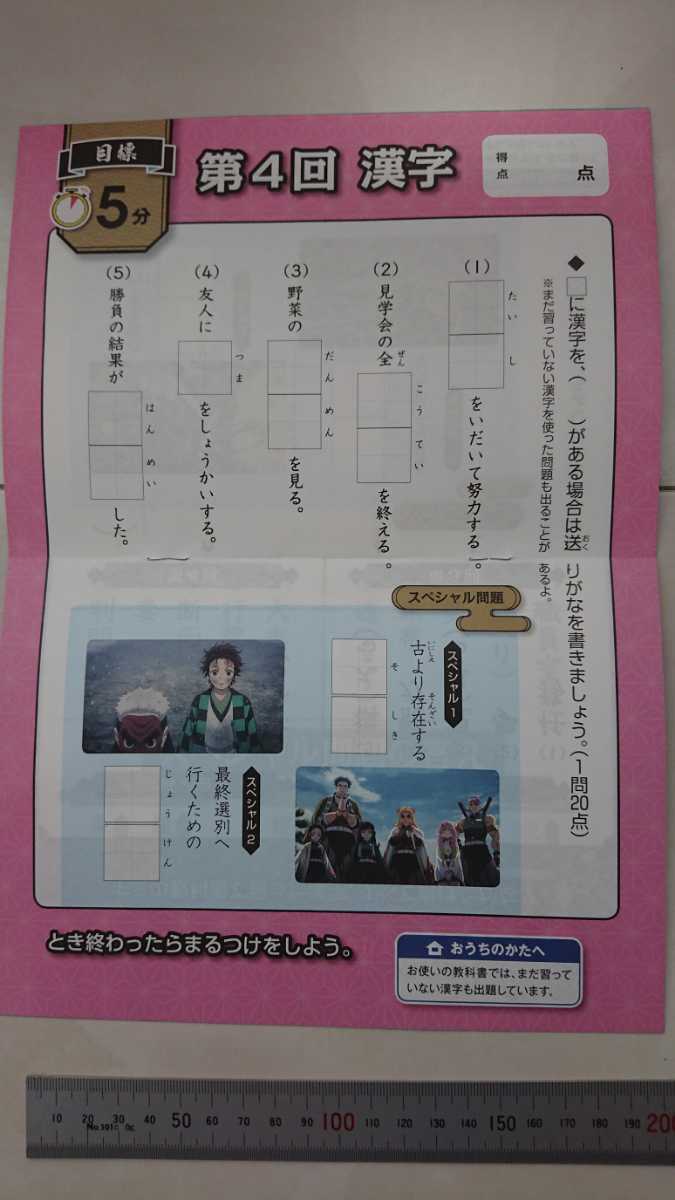 目標
5分
第4回 漢字
得点
点
◆□に漢字を、( )がある場合は送りがなを書きましょう。(1問20点)
おく
※まだ習っていない漢字を使った問題も出ることがあるよ。
(1)
たいし
をいだいて努力する。
(2)
見学会の全
ぜん
こうてい
を終える。
(3)
野菜の
だんめん
を見る。
(4)
友人に
つま
をしょうかいする。
(5)
勝負の結果が
はんめい
した。
スペシャル問題
スペシャル1
古より存在する
いにしえ
そんざい
そしき
スペシャル2
最終選別へ
行くための
じょうけん
とき終わったらまるつけをしよう。
おうちのかたへ
お使いの教科書では、まだ習って
いない漢字も出題しています。
10 20 30 40 50 60 70 80 90 100 110 120 130 140 150 160 170 180 190 200